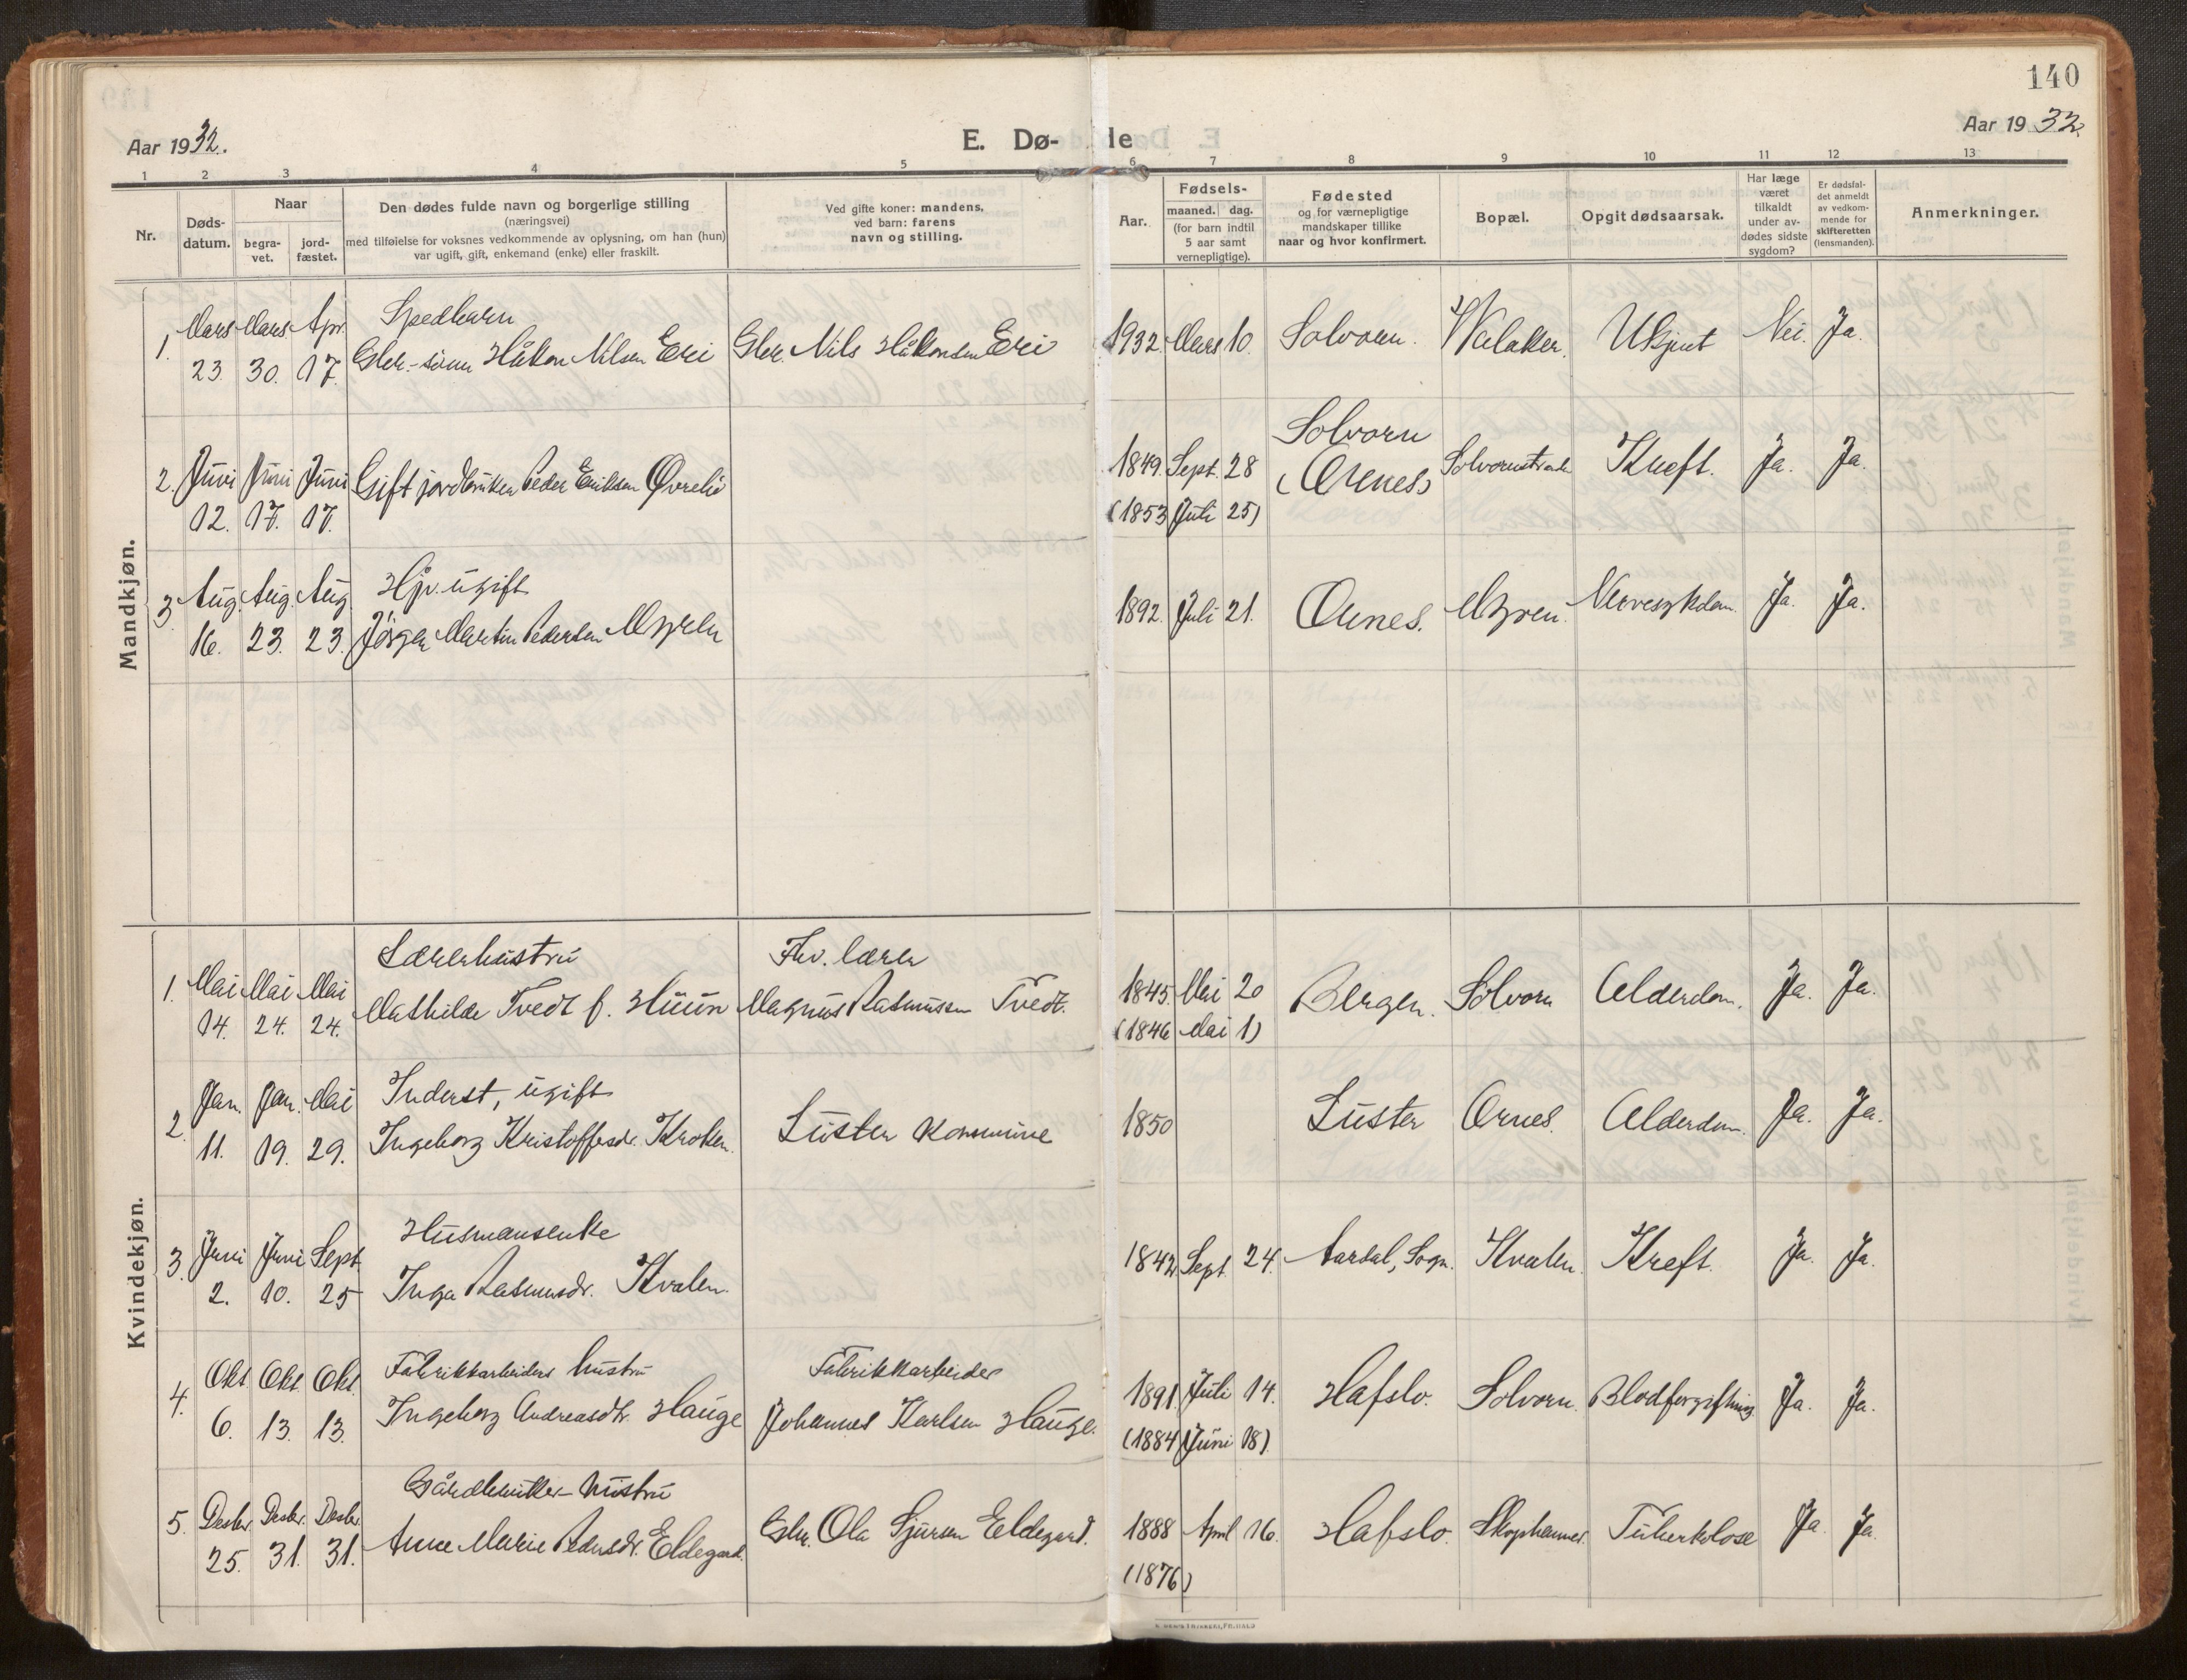 140
Aar 1932.
E. Dø-de
Aar 1932.
1 2 3 4 5 6 7 8 9 10 11 12 13
Nr.
Døds-datum.
Naar
begra-vet.
jord-fæstet.
Den dødes fulde navn og borgerlige stilling
(næringsvei)
med tilføielse for voksnes vedkommende av oplysning, om han (hun)
var ugift, gift, enkemand (enke) eller fraskilt.
Ved gifte koner: mandens,
ved barn: farens
navn og stilling.
Aar.
Fødsels-
maaned. dag.
(for barn indtil
5 aar samt
vernepligtige).
Fødested
og for værnepligtige
mandskaper tillike
naar og hvor konfirmert.
Bopæl.
Opgit dødsaarsak.
Har læge
været
tilkaldt
under av-
dødes sidste
sygdom?
Er dødsfal-
det anmeldt
av vedkom-
mende for
skifteretten
(lensmanden).
Anmerkninger.
Mandkjøn.
1. Mars Mars Apr. Spedbarn
23. 30. 17. Gbr.-sønn Håkon Nilsen Eri Gbr. Nils Håkonsen Eri 1932. Mars 10. Solvorn. Walaker. Ukjent Nei. Ja.
2. Juni Juni Juni Gift jordbruker Peder Eriksen Øvrelid 1849. Sept. 28 Solvorn Solvornstrand Kreft. Ja. Ja.
12. 17. 17. (1853 Juli 25) (Ornes)
3 Aug. Aug. Aug. Hjv. ugift
16. 23. 23. Jörgen Martin Pedersen Myren 1892. Juli 21. Ornes. Myren. Nervesykdom. Ja. Ja.
Kvindekjøn.
1. Mai Mai Mai Lærerhustru Fhv. lærer
14. 24. 24. Mathilde Tvedt f. Huun Magnus Rasmussen Tvedt. 1845. Mai 20 Bergen. Solvorn Alderdom. Ja. Ja.
(1846 Mai 1)
2. Jan. Jan. Mai Inderst, ugift
11. 19. 29. Ingeborg Kristoffersdr. Kroken. Luster kommune 1850 Luster Ornes. Alderdom. Ja. Ja.
3. Juni Juni Sept. Husmansenke
2. 10. 25 Inga Rasmusdr. Kvalen. 1842 Sept. 24. Aardal, Sogn. Kvalen. Kreft. Ja. Ja.
4. Okt. Okt. Okt. Fabrikkarbeiders hustru Fabrikkarbeider
6. 13. 13. Ingeborg Andreasdtr. Hauge Johannes Karlsen Hauge. 1891. Juli 14. Hafslo. Solvorn. Blodforgiftning. Ja. Ja.
(1884 Juni 18)
5. Desbr. Desbr. Desbr. Gårdbruker-hustru
25. 31. 31. Anne Marie Pedersdr. Eldegard. Gbr. Ola Sjursen Eldegard. 1888 April 16. Hafslo. Tuberkulose Ja. Ja.
(1876)